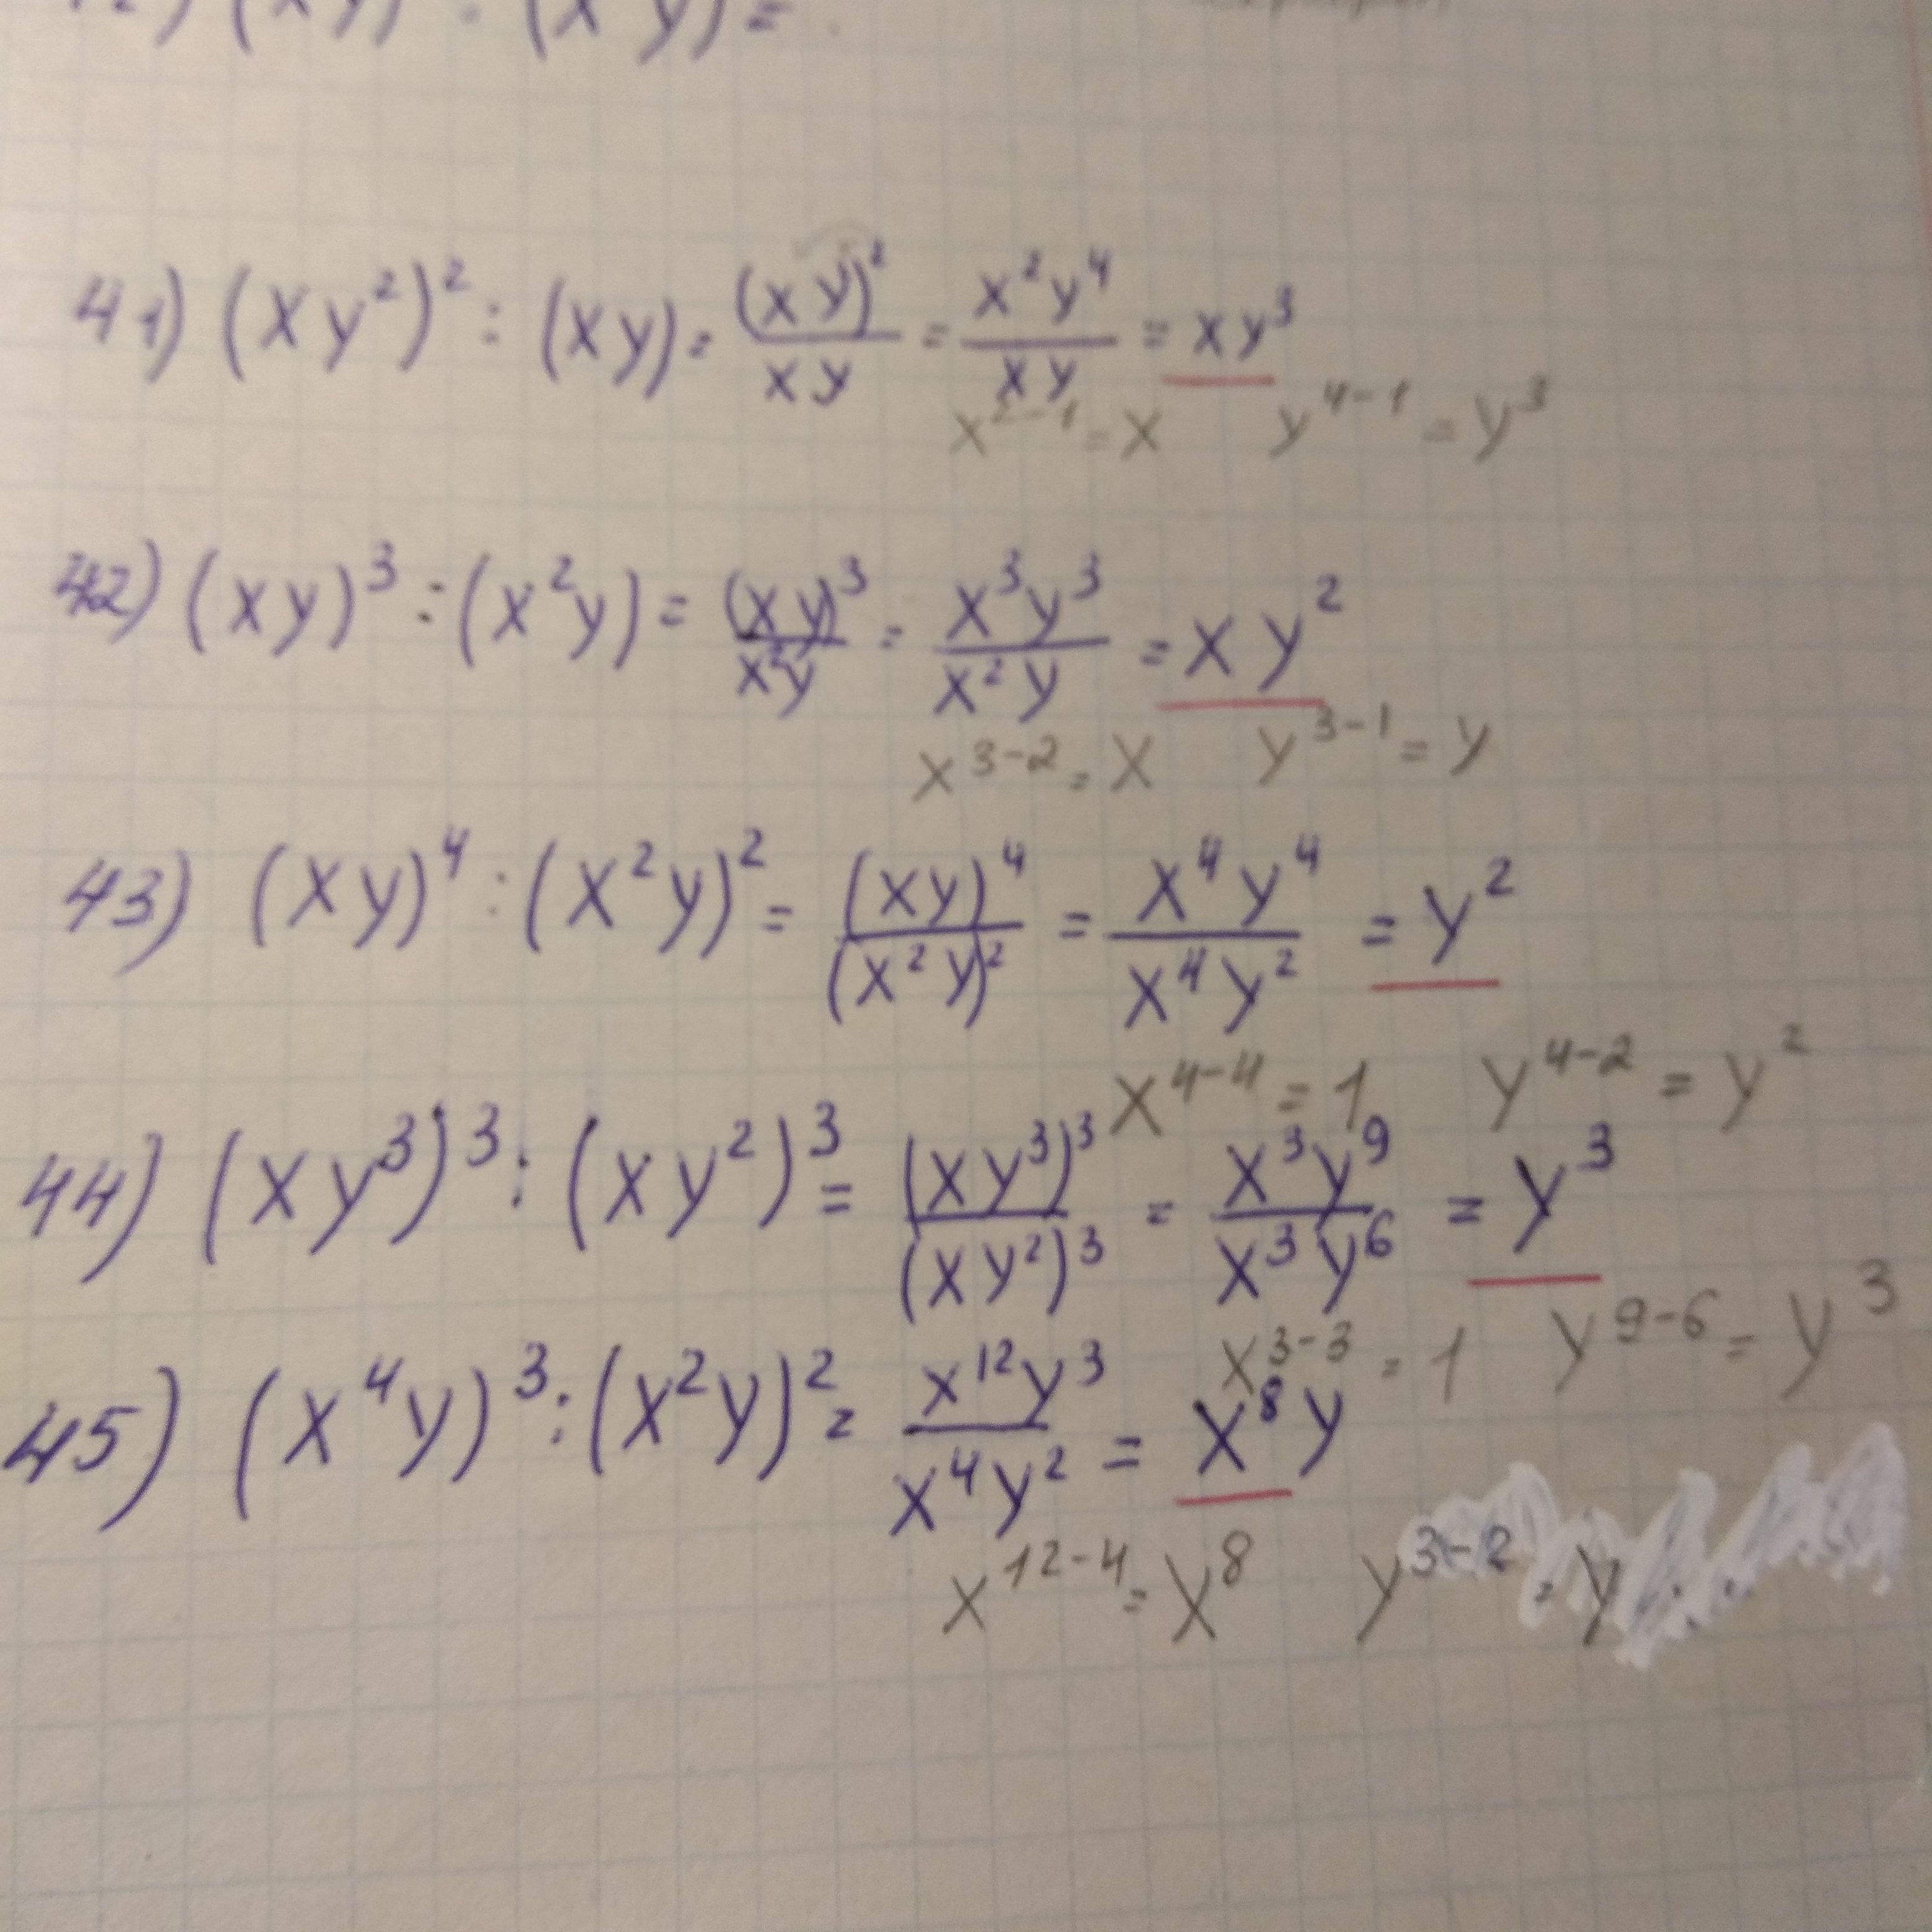 41) (xy²)² : (xy) = (xy)²/xy = x²y⁴/xy = xy³
x²⁻¹ = x y⁴⁻¹ = y³
42) (xy)³ : (x²y) = (xy)³/x²y = x³y³/x²y = xy²
x³⁻² = x y³⁻¹ = y
43) (xy)⁴ : (x²y)² = (xy)⁴/(x²y)² = x⁴y⁴/x⁴y² = y²
x⁴⁻⁴ = 1 y⁴⁻² = y²
44) (xy³)³ : (xy²)³ = (xy³)³/(xy²)³ = x³y⁹/x³y⁶ = y³
x³⁻³ = 1 y⁹⁻⁶ = y³
45) (x⁴y)³ : (x²y)² = x¹²y³/x⁴y² = x⁸y
x¹²⁻⁴ = x⁸ y³⁻² = y